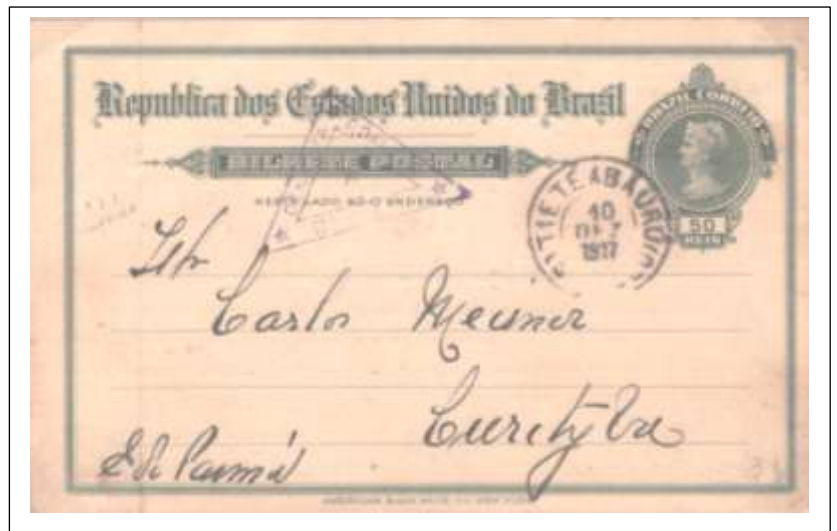 Republica dos Estados Unidos do Brazil
BILHETE POSTAL
BRAZIL CORREIO
50
REIS
TIETE A BAURU
10
DEZ
1917
Carlos Meisner
Curityba
E. do Paraná
AMERICAN BANK NOTE CO. NEW YORK